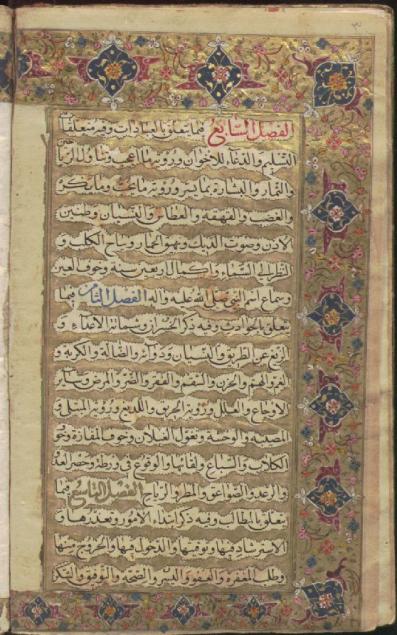 الفصل السابع فيما يتعلق بالعبادات وفيه متعلقات
التسليم والدعاء للاخوان ورؤية ما اعجب وتناول الرياحين
والثمار والبشارة بما يسر ورؤية ما يحب وما يكره
والغضب والقهقهة والعطاس والنسيان وطنين
الاذن وصوت الديك ونهيق الحمار ونباح الكلب و
النظر الى السماء واكمال اربعين سنة وخوف العين
وسماع اسم النبي صلى الله عليه واله الفصل الثامن فيما
يتعلق بالحوادث وفيه ذكر الخسران وشماتة الاعداء و
الزيغ عن الطريق والنسيان والضالة والكربة و
الغم والهم والحزن والسقم والفقر والضر والمرض وسائر
الاوجاع والعلل ورؤية الحريق واللديغ ورؤية المبتلى و
المصيبة والوحشة وتغول الغيلان وخوف المفازة وخوف
الكلاب والسباع ولقائها والوقوع في ورطة وحضر العدو
والرعد والصواعق والمطر والرياح الفصل التاسع فيما
يتعلق بالمطالب وفيه ذكر ابتداء الامور وتعذرها و
الاسترشاد فيها وتوقيتها والدخول فيها والخروج منها
وطلب المغفرة والعفو واليسر والصحة والتوفيق و